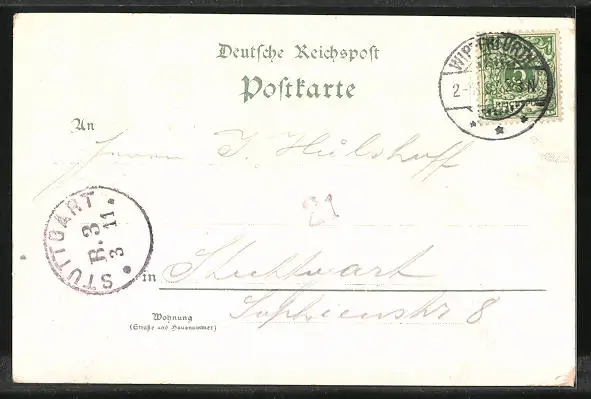 Deutsche Reichspost
Postkarte
WIPPERFÜRTH
An
Herrn J. Hülshoff
21
STUTTGART
R. 3
3 11
in Stuttgart
Sophienstr 8
Wohnung
(Straße und Hausnummer)